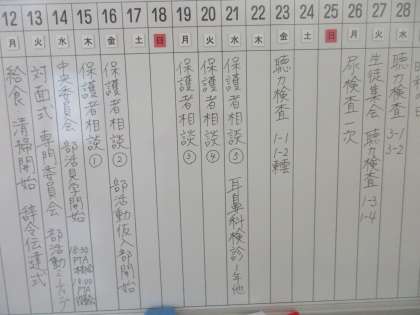 12 月 給食 清掃開始 辞令伝達式
13 火 対面式 専門委員会 部活動ミーティング
14 水 中央委員会 部活見学開始
15 木 保護者相談① 18:30 PTA 19:00 PTA
16 金 保護者相談② 部活動仮入部開始
17 土
18 日
19 月 保護者相談③
20 火 保護者相談④
21 水 保護者相談⑤ 耳鼻科検診 1年他
22 木
23 金 聴力検査 1-1 1-2
24 土
25 日
26 月 尿検査一次
27 火 生徒集会 聴力検査 1-3 1-4
28 水 聴力検査 3-1 3-2